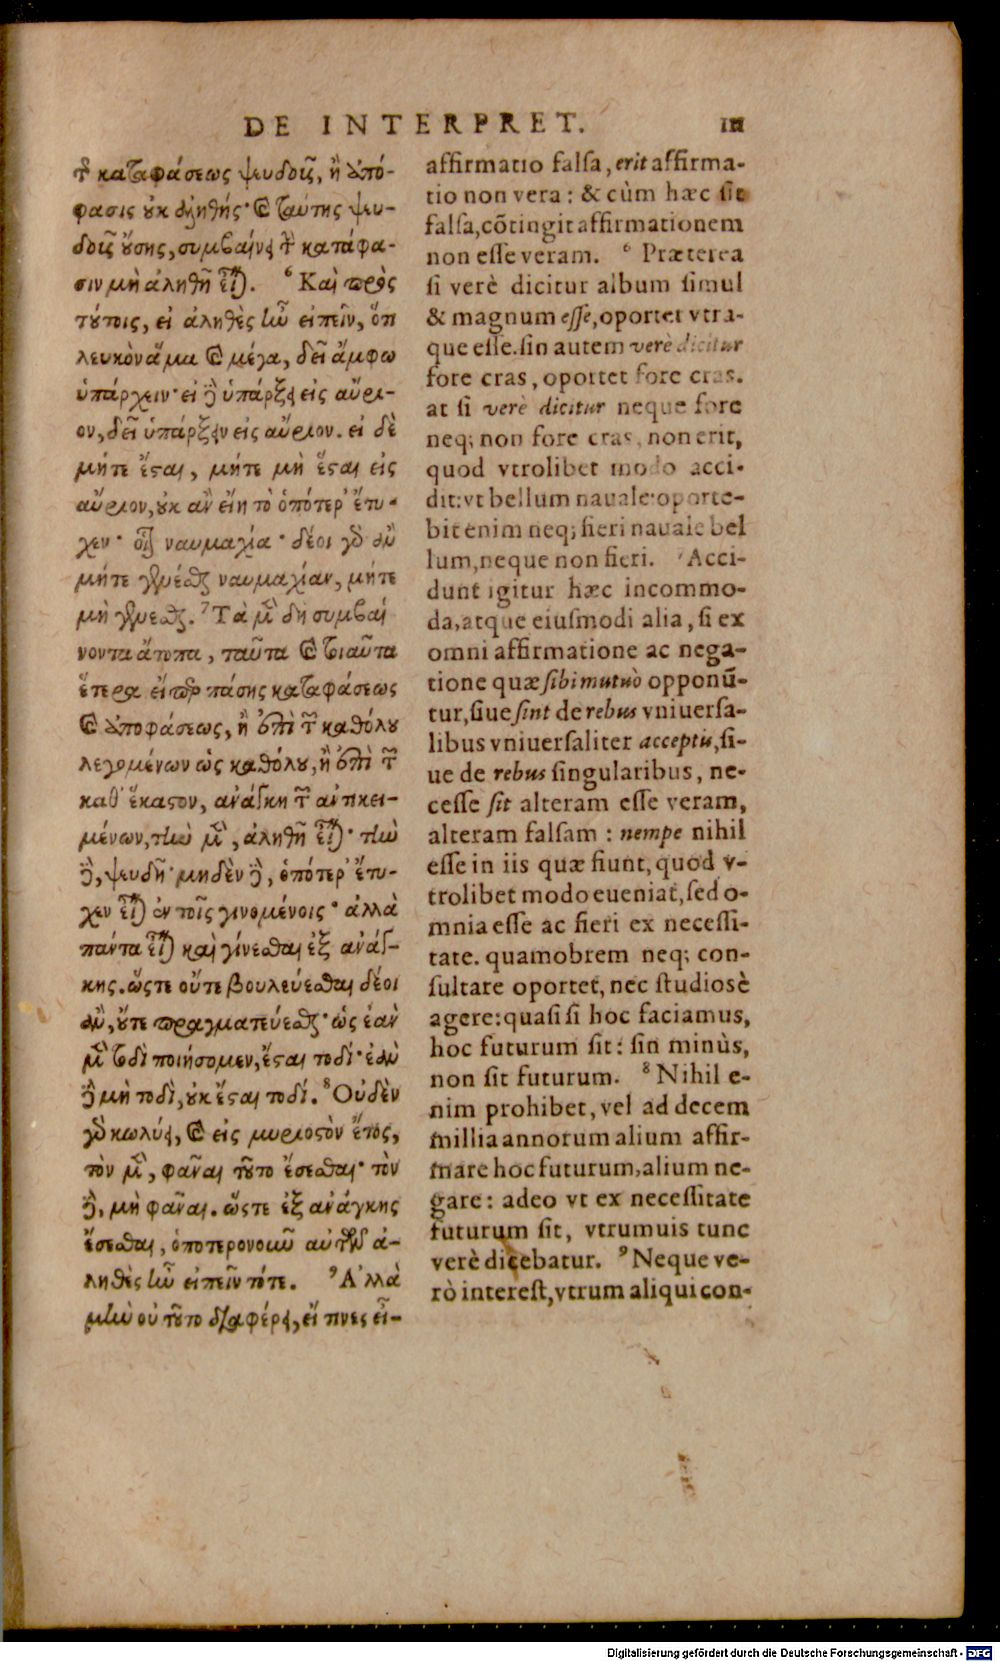 DE INTERPRET. 111
τῆς καταφάσεως ψευδοῦς, ἡ ἀπό-
φασις οὐκ ἀληθής· καὶ ταύτης ψευ-
δοῦς οὔσης, συμβαίνει τὴν κατάφα-
σιν μὴ ἀληθῆ εἶναι. ⁶ Καὶ πρὸς
τούτοις, εἰ ἀληθὲς ἦν εἰπεῖν, ὅτι
λευκὸν ἅμα καὶ μέγα, δεῖ ἄμφω
ὑπάρχειν· εἰ δὲ ὑπάρξει εἰς αὔρι-
ον, δεῖ ὑπάρξειν εἰς αὔριον. εἰ δὲ
μήτε ἔσται, μήτε μὴ ἔσται εἰς
αὔριον, οὐκ ἂν εἴη τὸ ὁπότερ' ἔτυ-
χεν· οἷον ναυμαχία· δέοι γὰρ ἂν
μήτε γενέσθαι ναυμαχίαν, μήτε
μὴ γενέσθαι. ⁷ Τὰ μὲν δὴ συμβαί-
νοντα ἄτοπα, ταῦτα καὶ τοιαῦτα
ἕτερα εἴπερ πάσης καταφάσεως
καὶ ἀποφάσεως, ἢ ἐπὶ τῶν καθόλου
λεγομένων ὡς καθόλου, ἢ ἐπὶ τῶν
καθ' ἕκαστον, ἀνάγκη τῶν ἀντικει-
μένων, τὴν μὲν, ἀληθῆ εἶναι· τὴν
δὲ, ψευδῆ· μηδὲν δὲ, ὁπότερ' ἔτυ-
χεν εἶναι ἐν τοῖς γινομένοις· ἀλλὰ
πάντα εἶναι καὶ γίνεσθαι ἐξ ἀνάγ-
κης. ὥστε οὔτε βουλεύεσθαι δέοι
ἂν, οὔτε πραγματεύεσθαι· ὡς ἐὰν
μὲν τοδὶ ποιήσομεν, ἔσται τοδί· ἐὰν
δὲ μὴ τοδὶ, οὐκ ἔσται τοδί. ⁸ Οὐδὲν
γὰρ κωλύει, καὶ εἰς μυριοστὸν ἔτος,
τὸν μὲν, φάναι τοῦτο ἔσεσθαι· τὸν
δὲ, μὴ φάναι. ὥστε ἐξ ἀνάγκης
ἔσεσθαι, ὁποτερονοιοῦν αὐτῶν ἀ-
ληθὲς ἦν εἰπεῖν τότε. ⁹ Ἀλλὰ
μὴν οὐ τοῦτο διαφέρει, εἴ τινες εἶ-
affirmatio falsa, erit affirma-
tio non vera: & cùm hæc sit
falsa, cõtingit affirmationem
non esse veram. ⁶ Præterea
si verè dicitur album simul
& magnum esse, oportet vtra-
que esse. sin autem verè dicitur
fore cras, oportet fore cras.
at si verè dicitur neque fore
neq; non fore cras, non erit,
quod vtrolibet modo acci-
dit: vt bellum nauale: oporte-
bit enim neq; fieri nauale bel
lum, neque non fieri. ⁷ Acci-
dunt igitur hæc incommo-
da, atque eiusmodi alia, si ex
omni affirmatione ac nega-
tione quæ sibi mutuò opponũ-
tur, siue sint de rebus vniuersa-
libus vniuersaliter acceptis, si-
ue de rebus singularibus, ne-
cesse sit alteram esse veram,
alteram falsam: nempe nihil
esse in iis quæ fiunt, quod v-
trolibet modo eueniat, sed o-
mnia esse ac fieri ex necessi-
tate. quamobrem neq; con-
sultare oportet, nec studiosè
agere: quasi si hoc faciamus,
hoc futurum sit: sin minùs,
non sit futurum. ⁸ Nihil e-
nim prohibet, vel ad decem
millia annorum alium affir-
mare hoc futurum, alium ne-
gare: adeo vt ex necessitate
futurum sit, vtrumuis tunc
verè dicebatur. ⁹ Neque ve-
rò interest, vtrum aliqui con-
Digitalisierung gefördert durch die Deutsche Forschungsgemeinschaft - DFG